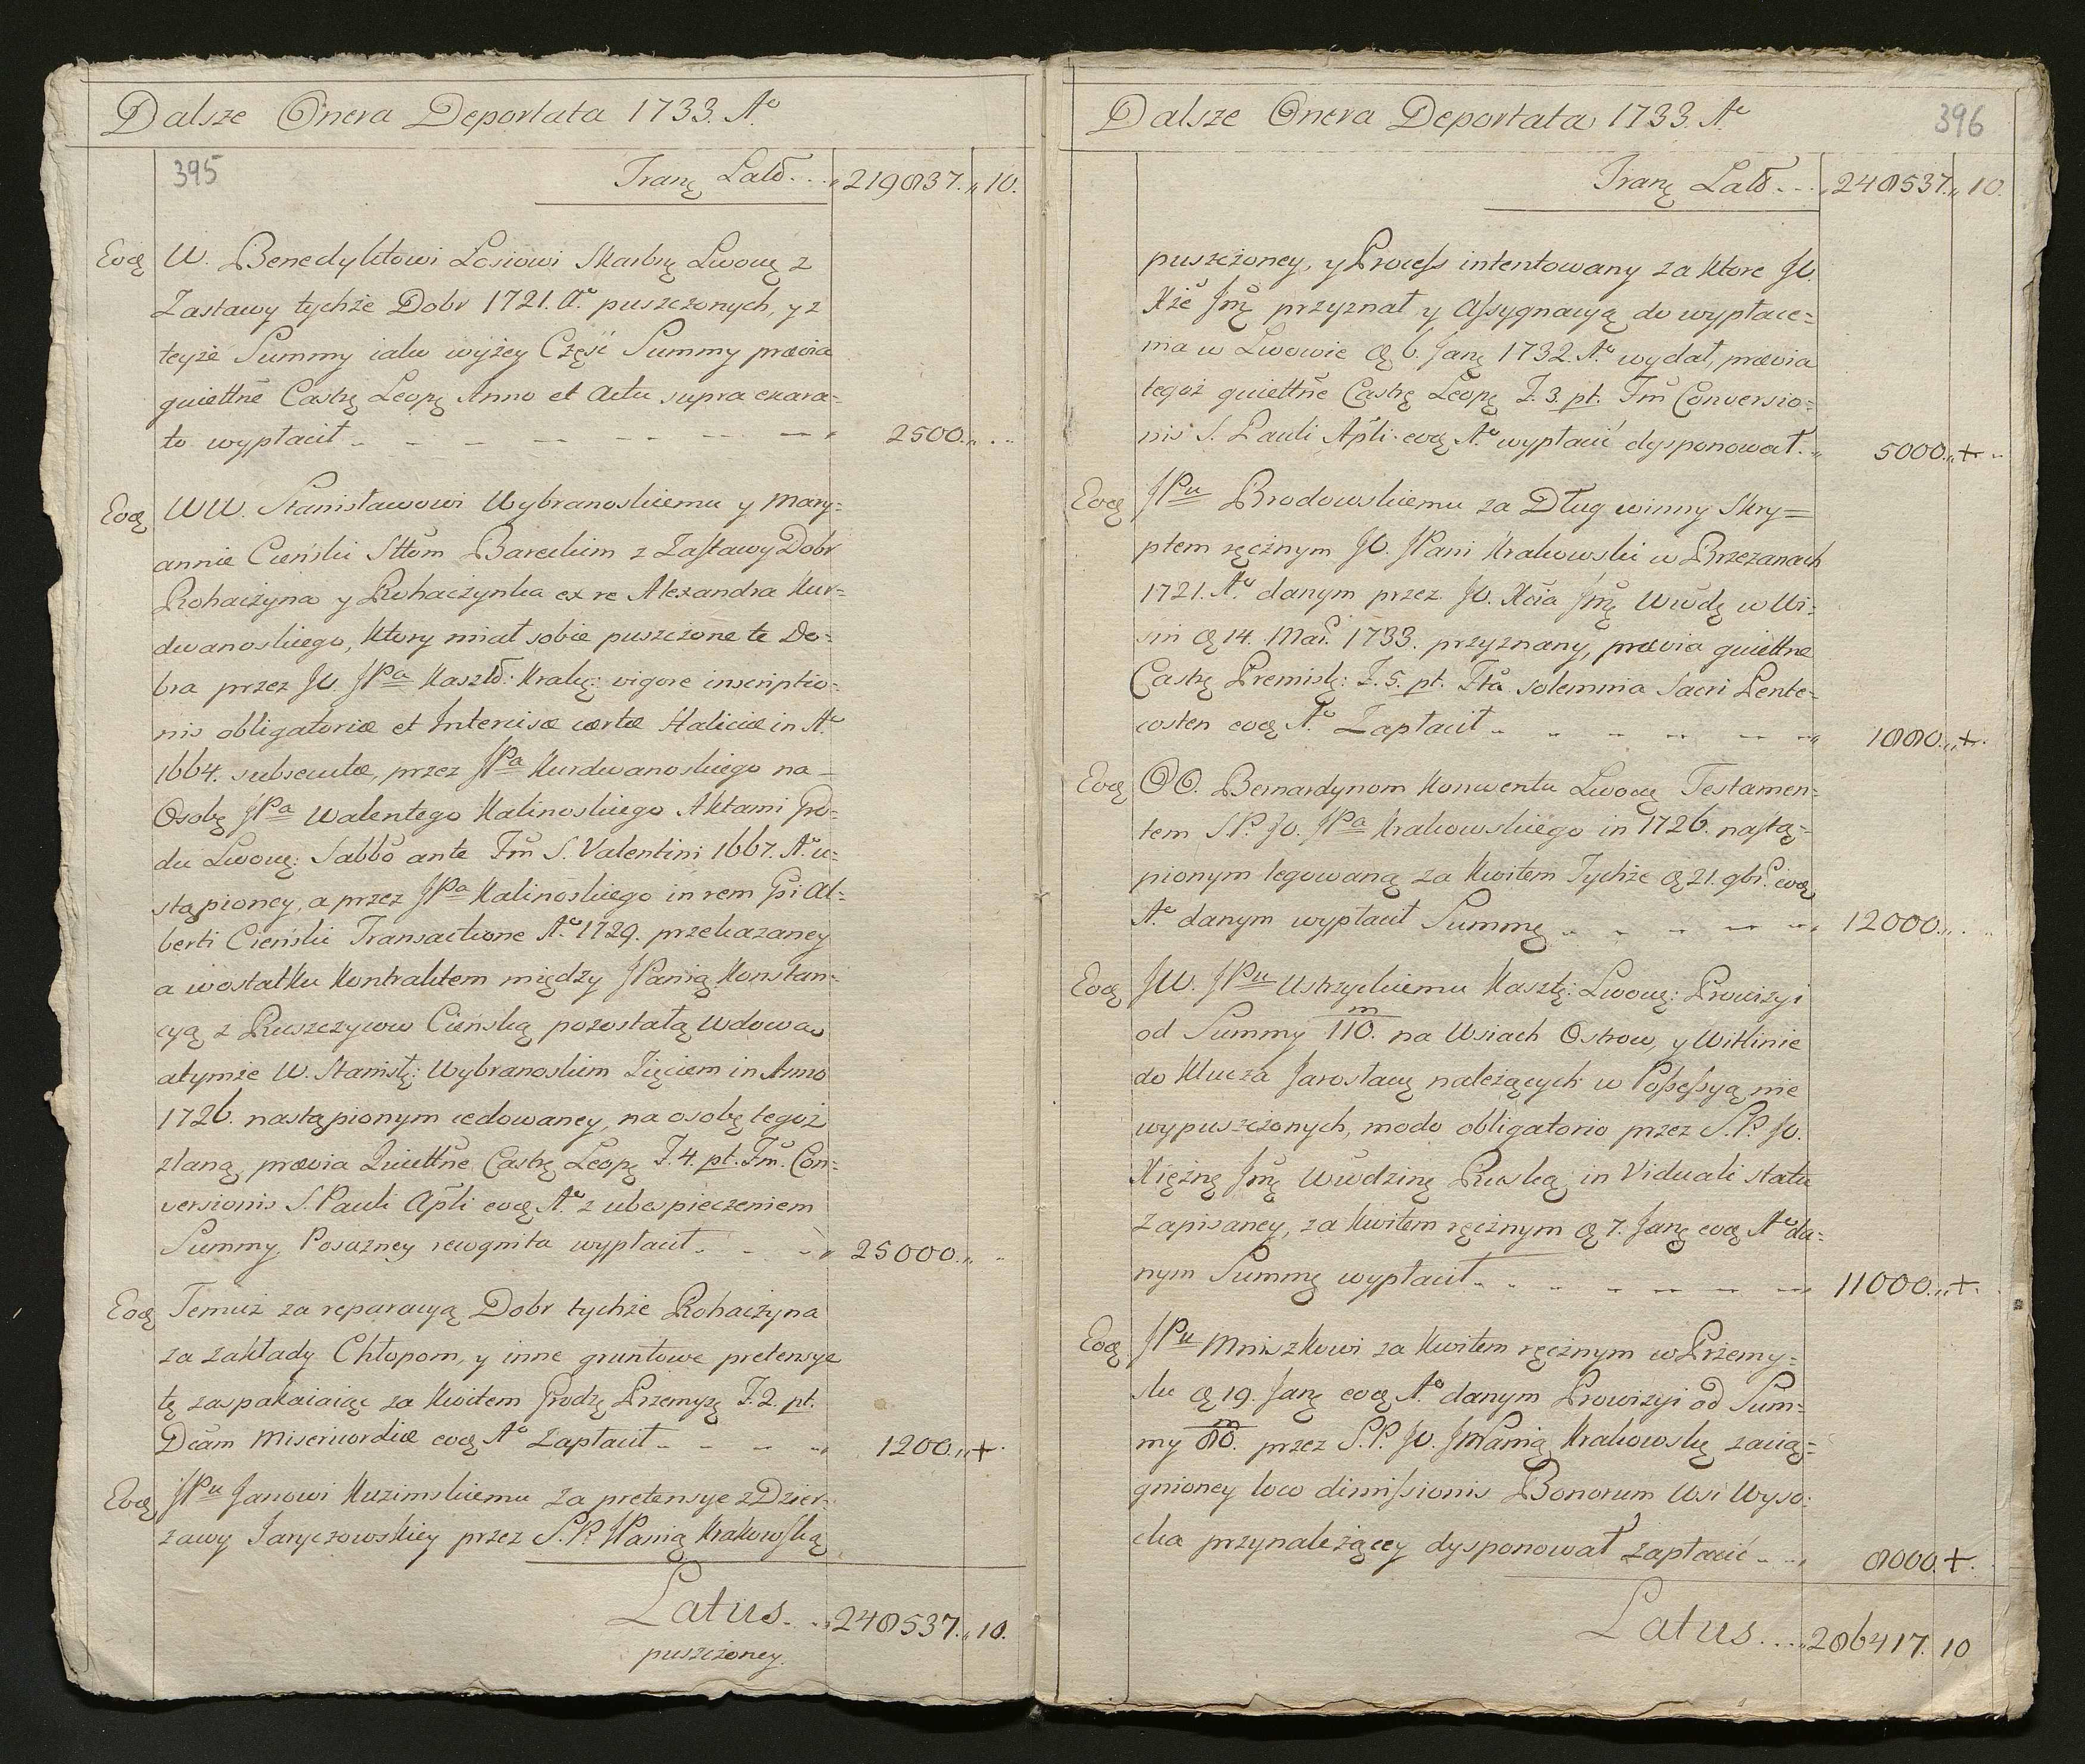 Dalsze Onera Deportata 1733. Aº
395
Tranę Latō... 219837. 10.
Eodę W. Benedyktowi Łosiowi Skarbę Lwowę z
Zastawy tychże Dobr 1721. Aº puszczonych, y z
teyże Summy iako wyżey Część Summy prævia
quiettñe Castrę Leopę Anno et Actu supra exara=
to wypłacił 2500.
Eodę WW. Stanisławowi Wybranoskiemu y Mary=
annie Cieński Sttōm Bareckim z Zastawy Dobr
Rohaczyna y Rohaczynka ex re Alexandra Kur=
dwanoskiego, ktory miał sobie puszczone te Do=
bra przez Jo. JPa Kasztō: Krakę: vigore inscriptio=
nis obligatoriæ et Intercisæ certæ Haliciæ in Aº
1664. subsecutæ, przez JPa Kurdwanoskiego na
Osobę JPa Walentego Kalinoskiego Aktami Gro=
du Lwowę: Sabbō ante Fm̄ S. Valentini 1667. Aº u=
stąpioney, a przez JPa Kalinoskiego in rem Gsi Al=
berti Cieński Transactione Aº 1729. przekazaney
a w ostatku Kontraktem między JPanią Konstan=
cyą z Ruszczycow Cieńską pozostałą Wdową
a tymże W. Stanisłę: Wybranoskim Zięciem in Anno
1726. nastąpionym cedowaney, na osobę tegoż
zlaną, prævia Quiettñe Castrę Leopę F. 4. pt. Fm̄. Con=
versionis S. Pauli Apłi eodę Aº z ubespieczeniem
Summy Posazney recognita wypłacił 25000.
Eodę Temuż za reparacyą Dobr tychże Rohaczyna
za zakłady Chłopom, y inne gruntowe pretensye
tę zaspakaiaiąc za Kwitem Grodzę Przemysę F. 2. pt.
Dcam Misericordiæ eodę Aº Zapłacił 1200. +
Eodę JPu Janowi Kuzimskiemu za pretensye z Dzier=
zawy Jaryczowskiey przez S. P. JPanią Krakowską
Latus 248537. 10.
puszczoney.
Dalsze Onera Deportata 1733. Aº
396
Tranę Latō... 248537. 10.
puszczoney, y Process intentowany za ktore Jo.
Xże Jmę przyznał y Assygnacyą do wypłace=
nia w Lwowie dę 6. Janę 1732. Aº wydał, prævia
tegoż quiettñe Castrę Leopę F. 3. pt. Fm̄ Conversio=
nis S. Pauli Apłi eodę Aº wypłacić dysponował. 5000. +
Eodę JPu Brodowskiemu za Dług winny Skry=
ptem ręcznym Jo. JPani Krakowski w Brzezanach
1721. Aº danym przez Jo. Xcia Jmę Wwodę w Wi=
śni dę 14. Mar. 1733. przyznany, prævia quiettñe
Castrę Premislę: F. 5. pt. Fta solemnia Sacri Pente=
costen eodę Aº Zapłacił 1880. +
Eodę OO. Bernardynom Konwentu Lwowę Testamen=
tem S. P. Jo. JPa Krakowskiego in 1726. nastą=
pionym legowaną za Kwitem Tychże dę 21. 9br. eodę
Aº danym wypłacił Summę 12000.
Eodę JW. JPu Ustrzyckiemu Kasztę: Lwowę: Prowizyi
od Summy 110.m na Wsiach Ostrow, y Witlinie
do Klucza Jarosławę należących w Possessyą nie
wypuszczonych, modo obligatorio przez S. P. Jo.
Xiężnę Jmę Wwodzinę Ruską in Viduali statu
Zapisaney, za Kwitem ręcznym dę 7. Janę eodę Aº da=
nym Summę wypłacił 11000. +
Eodę JPu Mniszkowi za Kwitem ręcznym w Przemy=
slu dę 19. Janę eodę Aº danym Prowizyi od Sum=
my 80.m przez S. P. Jo. JMPanią Krakowską zacią=
gnioney loco dimissionis Bonorum Wsi Wyso=
cka przynależącey dysponował zapłacić 8000. +
Latus.... 286417. 10